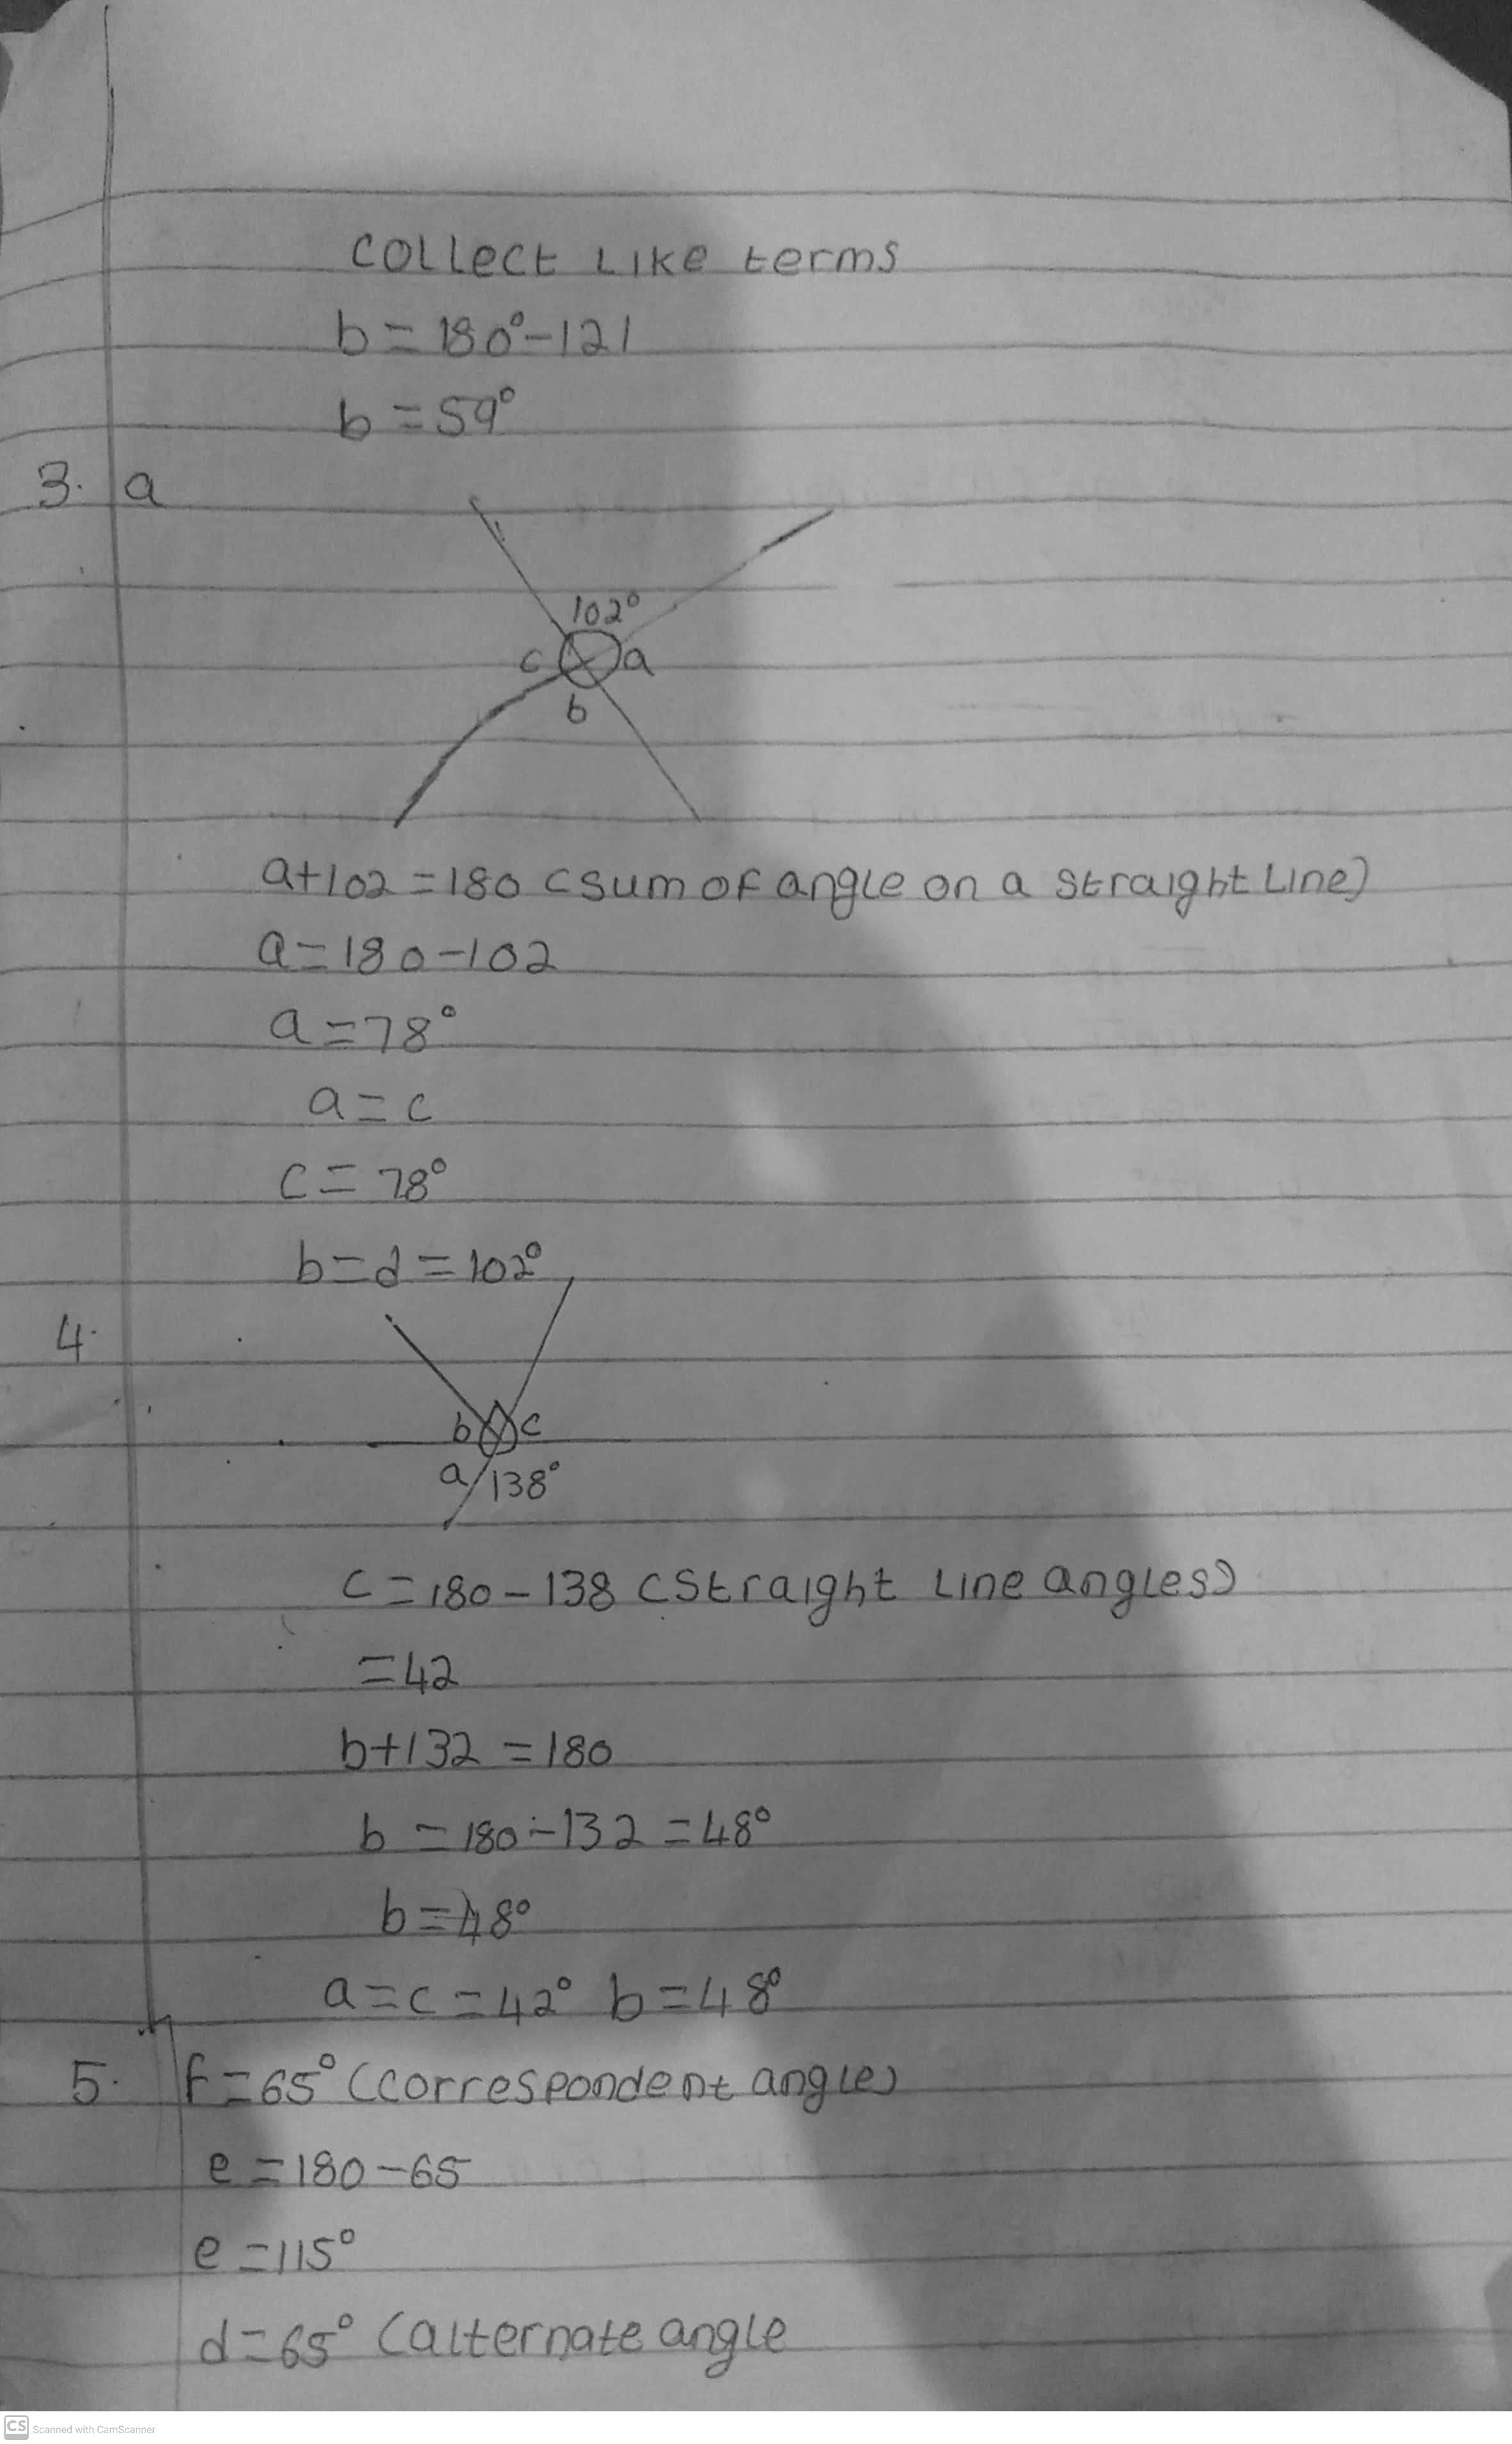 collect like terms
b = 180° - 121
b = 59°
3. a
102°
c a
b
a + 102 = 180 (sum of angle on a straight line)
a = 180 - 102
a = 78°
a = c
c = 78°
b = d = 102°
4.
b c
a 138°
c = 180 - 138 (straight line angles)
= 42
b + 132 = 180
b = 180 - 132 = 48°
b = 48°
a = c = 42° b = 48°
5. f = 65° (correspondent angle)
e = 180 - 65
e = 115°
d = 65° (alternate angle
CS Scanned with CamScanner